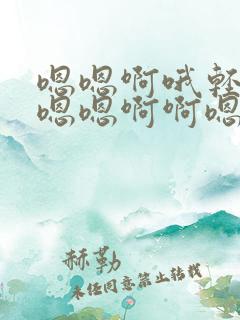 嗯嗯啊哦轻
嗯嗯啊啊嗯
赫勒
未经同意禁止转载